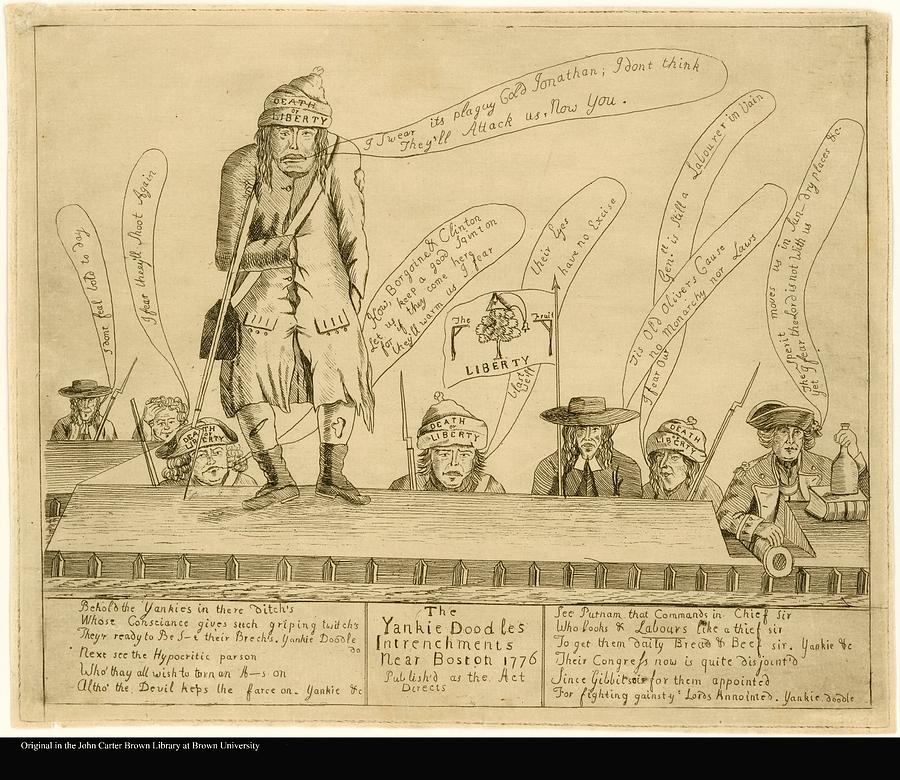 DEATH
or
LIBERTY
I Swear its plaguy Cold Jonathan; I dont think
They'll Attack us, Now You.
I dont feal bold to day
I fear theey'll Shoot Again
How, Borgoine, & Clinton
Let us keep a good
for if they come here
they'll warm us I fear
their Eyes
have no Excise
The Fruit
LIBERTY
Genl. is still a Labourer in Vain
Tis Old Olivers Cause
no Monarchy nor Laws
I fear Our
The Sperit moves us in Sun-dry places &c.
Yet I fear the Lord is not With us
DEATH
or
LIBERTY
DEATH
or
LIBERTY
DEATH
or
LIBERTY
Behold the Yankies in there ditch's
Whose Consciance gives such griping twitch's
They'r ready to Be S-t their Brech's. Yankie Doodle
do
Next see the Hypocritic parson
Who' thay all wish to turn an A—s on
Altho' the Devil keps the farce on. Yankie &c
The
Yankie Doodles
Intrenchments
Near Boston 1776
Publish'd as the Act
Directs
See Putnam that Commands in Chief Sir
Who looks & Labours like a thief sir
To get them daily Bread & Beef sir. Yankie &c
Their Congress now is quite disjoint'd
Since Gibbits for them appointed
For fighting gainst ye Lords Annointed. Yankie doodle
Original in the John Carter Brown Library at Brown University